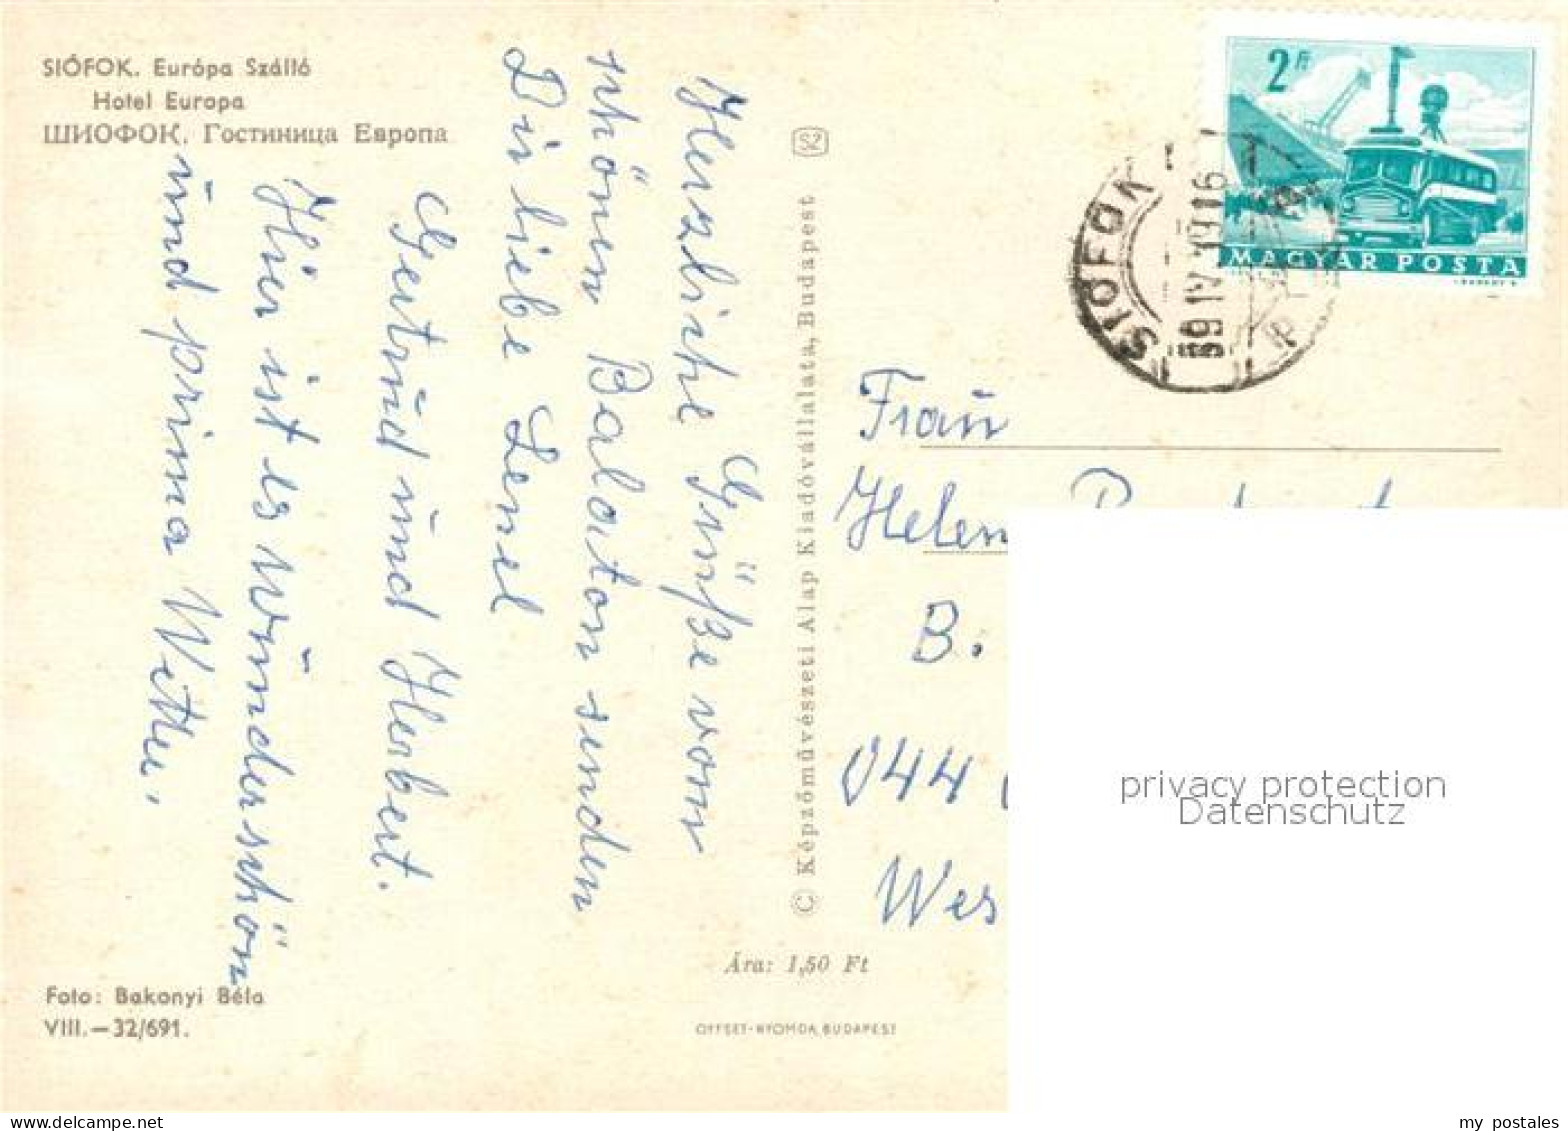 SIÓFOK. Európa Szálló
Hotel Europa
ШИОФОК. Гостиница Европа
Herzliche Grüße vom
schönen Balaton senden
Dir liebe Lenel
Gertrud und Herbert.
Hier ist es wunderschön
und prima Wetter.
Foto: Bakonyi Béla
VIII.—32/691.
SZ
© Képzőművészeti Alap Kiadóvállalata, Budapest
Ára: 1,50 Ft
OFFSET-NYOMDA, BUDAPEST
2 Ft
MAGYAR POSTA
SIÓFOK
69 IV 19 16
Frau
Helen
B.
044
Wes
privacy protection
Datenschutz
my postales